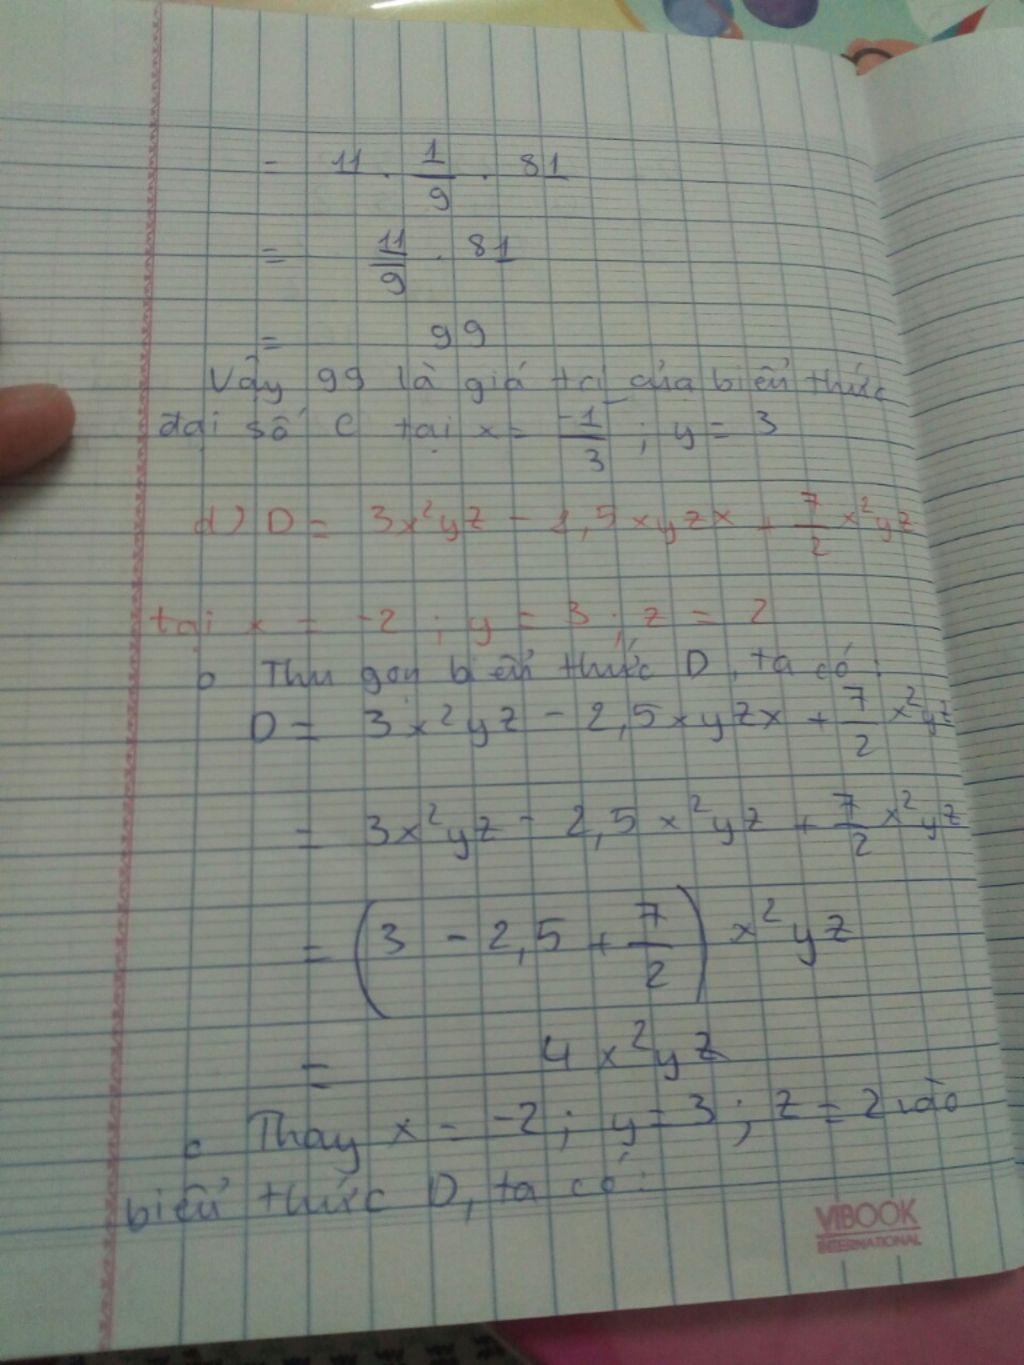 = 11 . 1/9 . 81
= 11/9 . 81
= 99
Vậy 99 là giá trị của biểu thức
đại số C tại x = -1/3 ; y = 3
d) D = 3x²yz - 2,5xyzx + 7/2 x²yz
tại x = -2 ; y = 3 ; z = 2
Thu gọn biểu thức D, ta có:
D = 3x²yz - 2,5xyzx + 7/2 x²yz
= 3x²yz - 2,5x²yz + 7/2 x²yz
= (3 - 2,5 + 7/2) x²yz
= 4x²yz
Thay x = -2 ; y = 3 ; z = 2 vào
biểu thức D, ta có:
VIBOOK
INTERNATIONAL